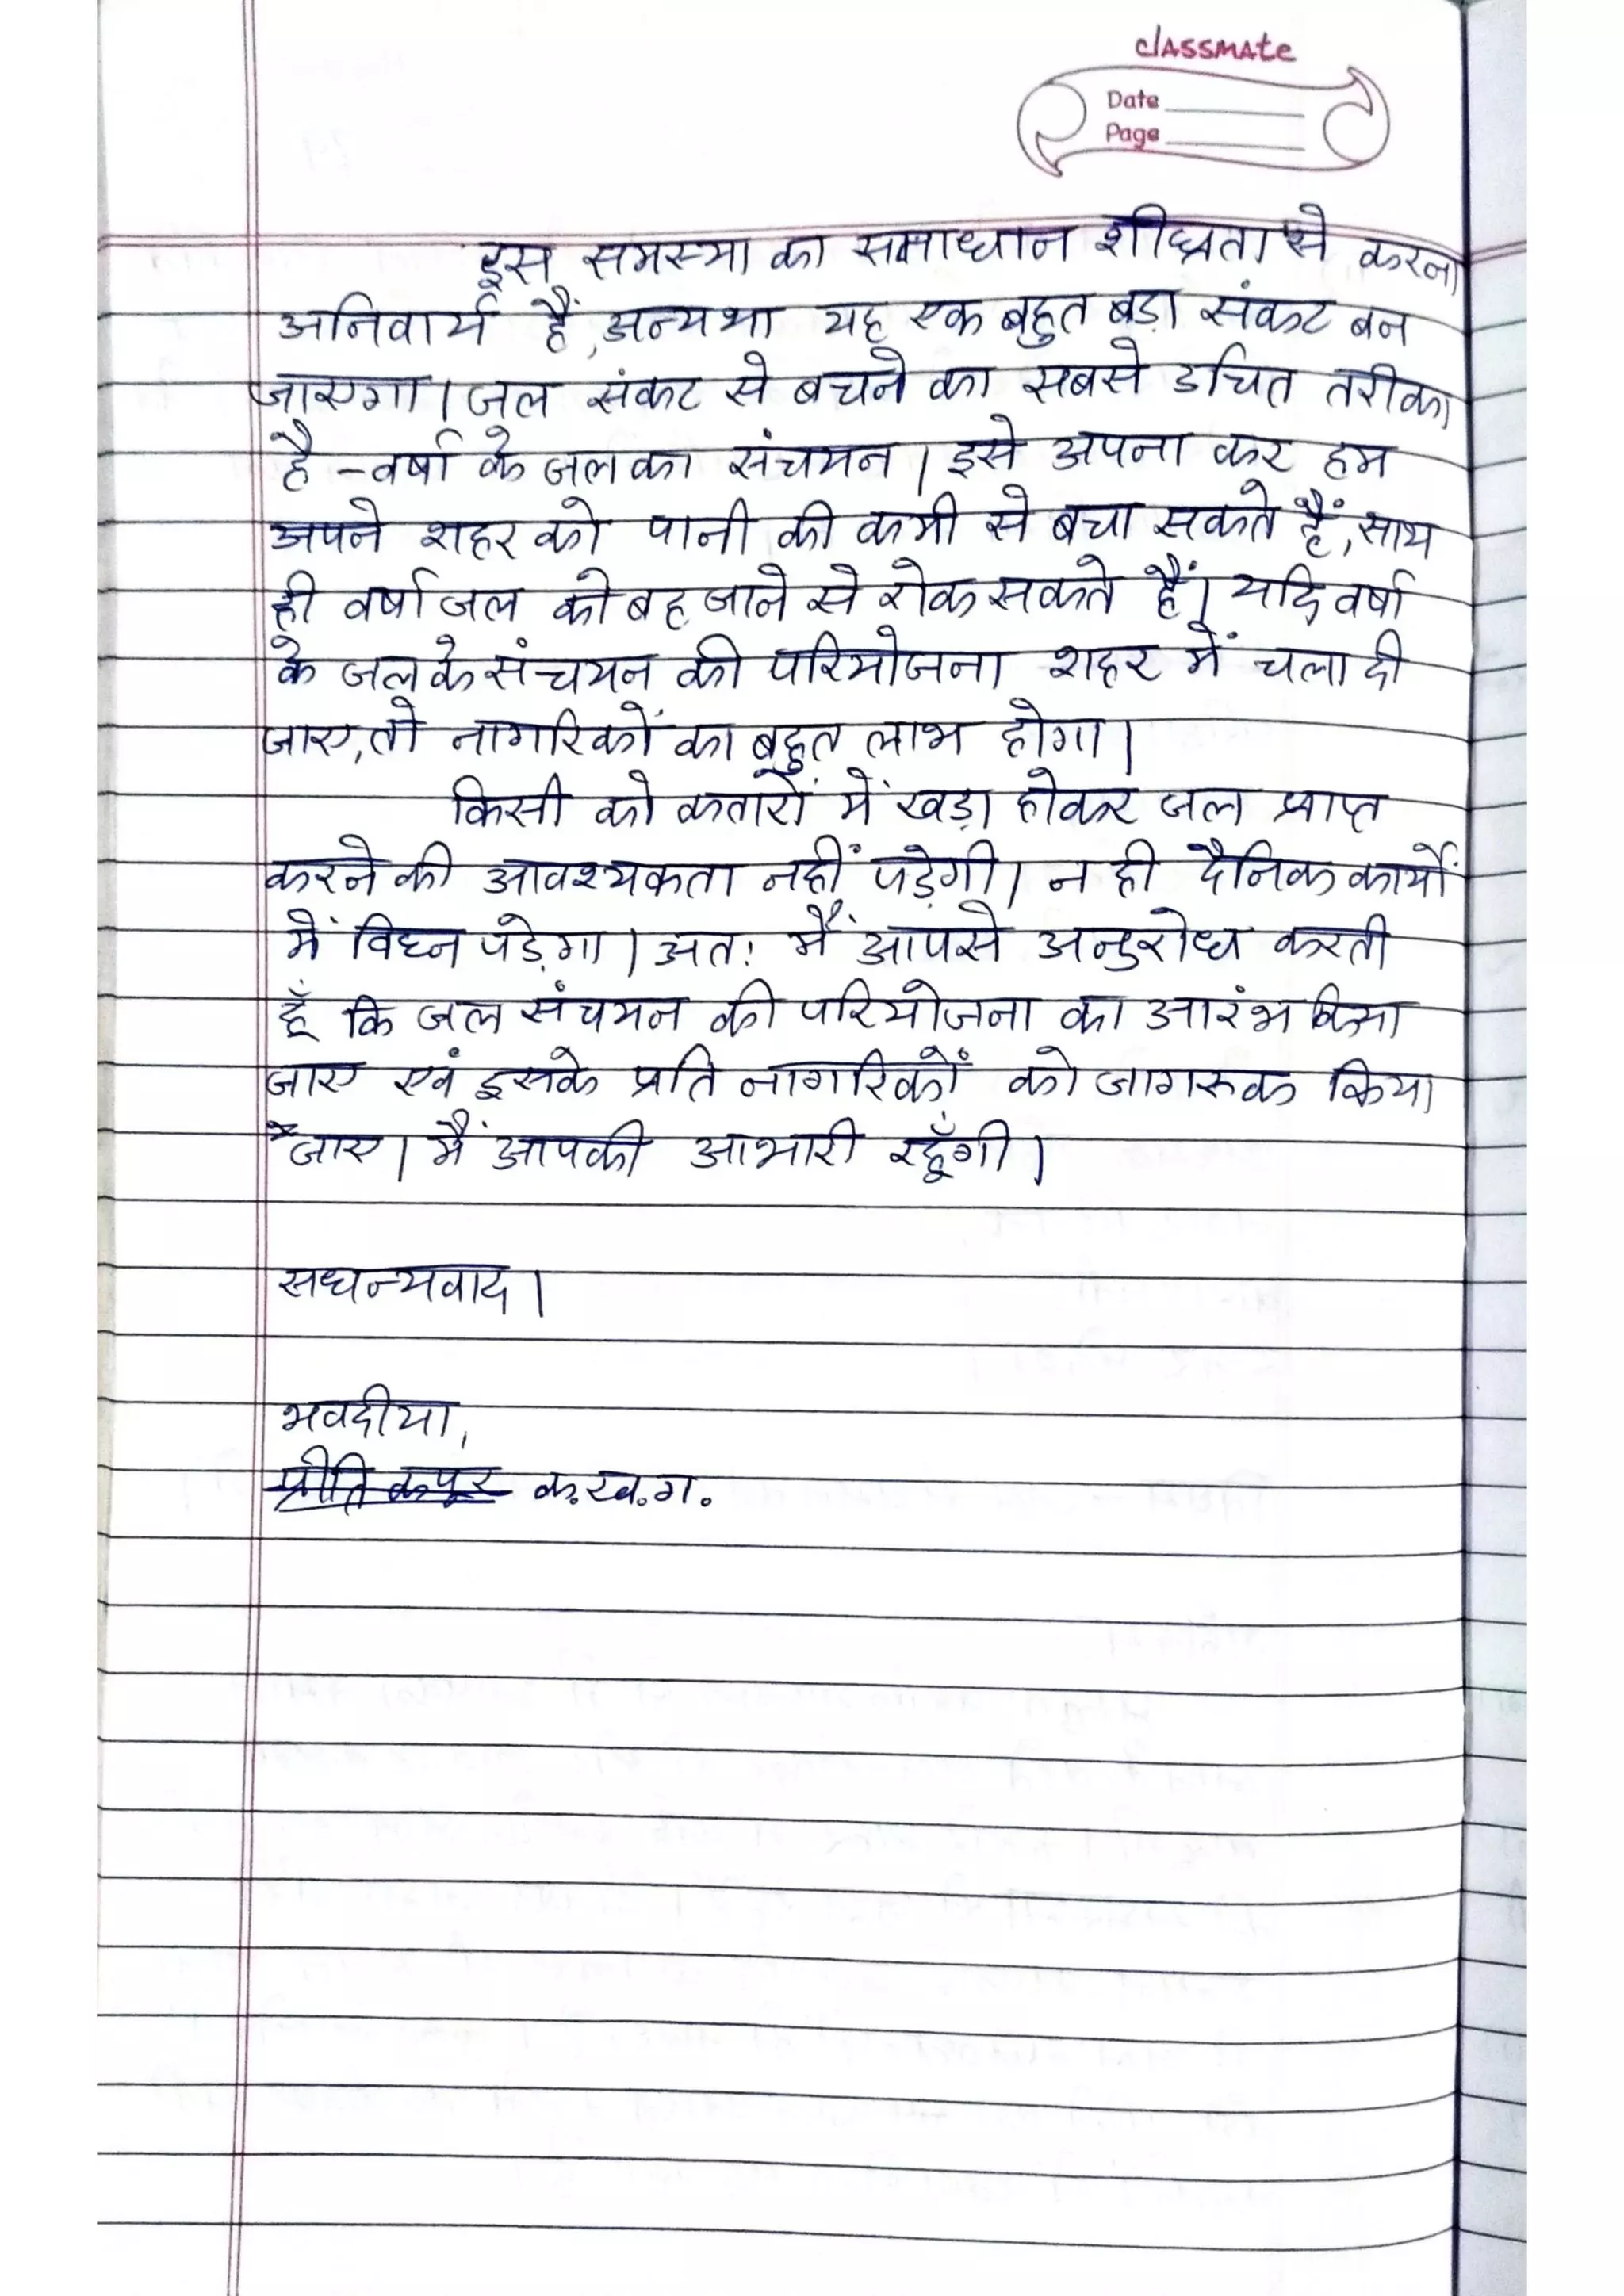 classmate
Date
Page
इस समस्या का समाधान शीघ्रता से करना
अनिवार्य हैं, अन्यथा यह एक बहुत बड़ा संकट बन
जाएगा। जल संकट से बचने का सबसे उचित तरीका
है - वर्षा के जल का संचयन। इसे अपना कर हम
अपने शहर को पानी की कमी से बचा सकते हैं, साथ
ही वर्षा जल को बह जाने से रोक सकते हैं। यदि वर्षा
के जल के संचयन की परियोजना शहर में चला दी
जाए, तो नागरिकों का बहुत लाभ होगा।
किसी को कतारों में खड़ा होकर जल प्राप्त
करने की आवश्यकता नहीं पड़ेगी। न ही दैनिक कार्यों
में विघ्न पड़ेगा। अतः मैं आपसे अनुरोध करती
हूँ कि जल संचयन की परियोजना का आरंभ किया
जाए एवं इसके प्रति नागरिकों को जागरूक किया
जाए। मैं आपकी आभारी रहूँगी।
सधन्यवाद।
भवदीया,
प्रीति कपूर क.ख.ग.